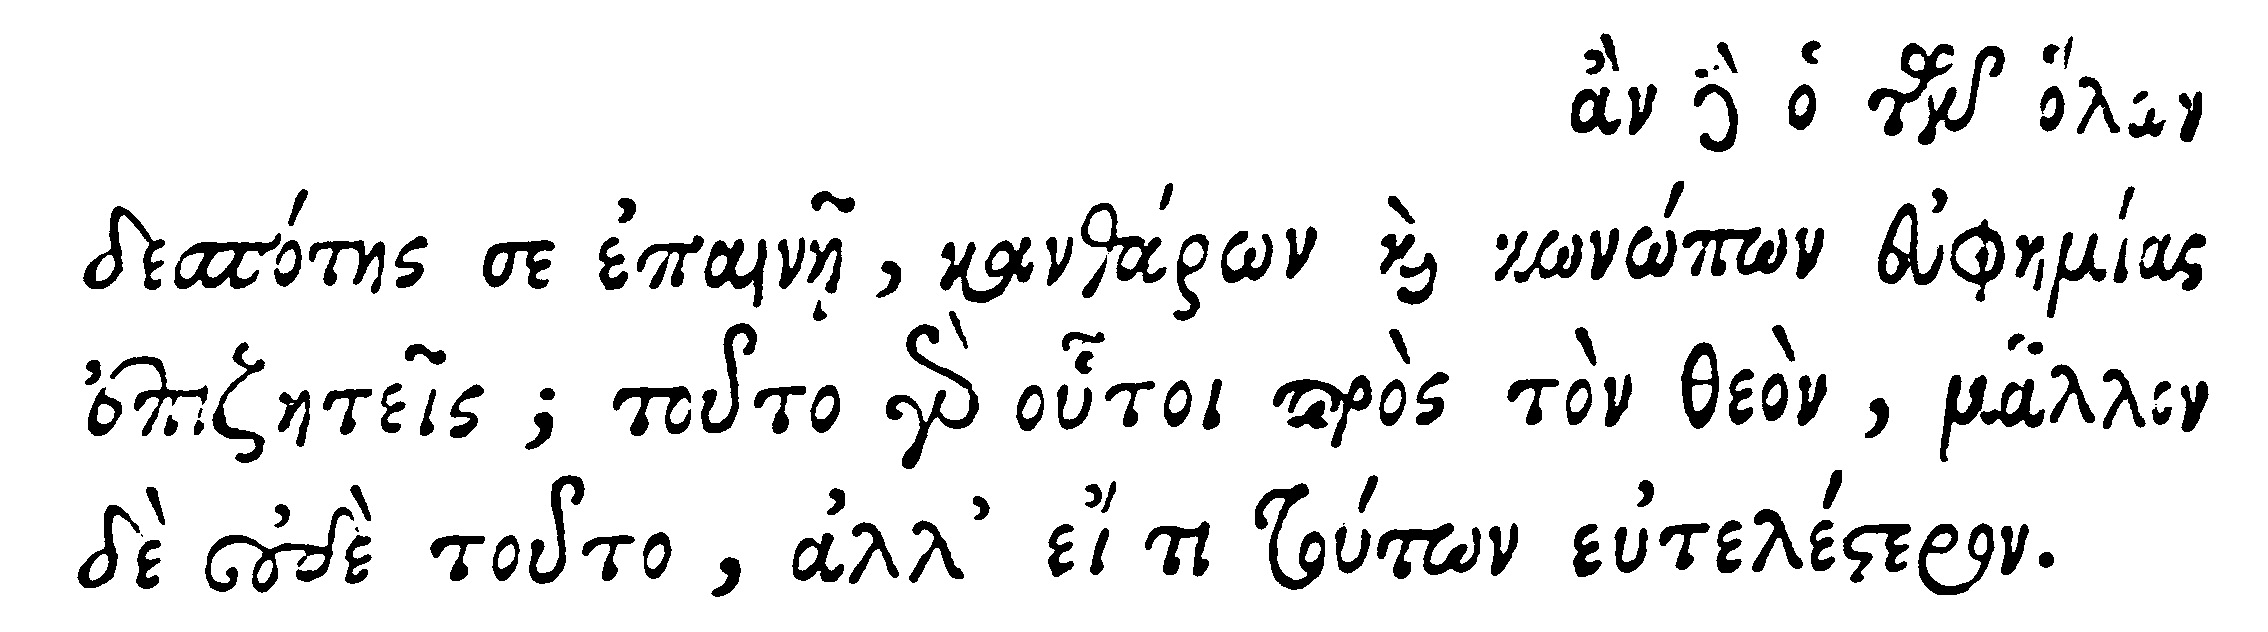 ἂν ὁ τῶν ὅλων
δεσπότης σε ἐπαινῇ, κανθάρων καὶ κωνώπων εὐφημίας
ἐπιζητεῖς; τοῦτο γὰρ οὗτοι πρὸς τὸν θεὸν, μᾶλλον
δὲ οὐδὲ τοῦτο, ἀλλ᾽ εἴ τι τούτων εὐτελέστερον.